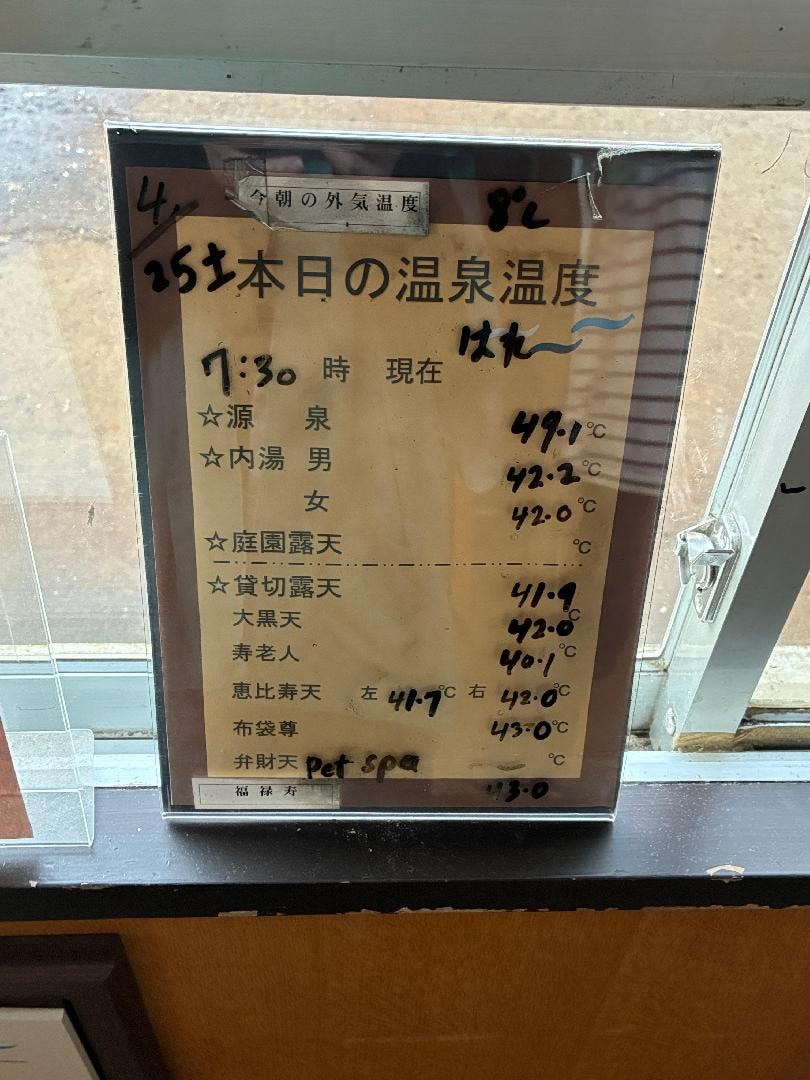 4/25土
今朝の外気温度 8℃
本日の温泉温度
はれ
7:30 時 現在
☆源 泉 49.1℃
☆内湯 男 42.2℃
女 42.0℃
☆庭園露天 ℃
☆貸切露天 41.9
大黒天 42.0℃
寿老人 40.1℃
恵比寿天 左 41.7℃ 右 42.0℃
布袋尊 43.0℃
弁財天 pet spa ℃
福禄寿 43.0